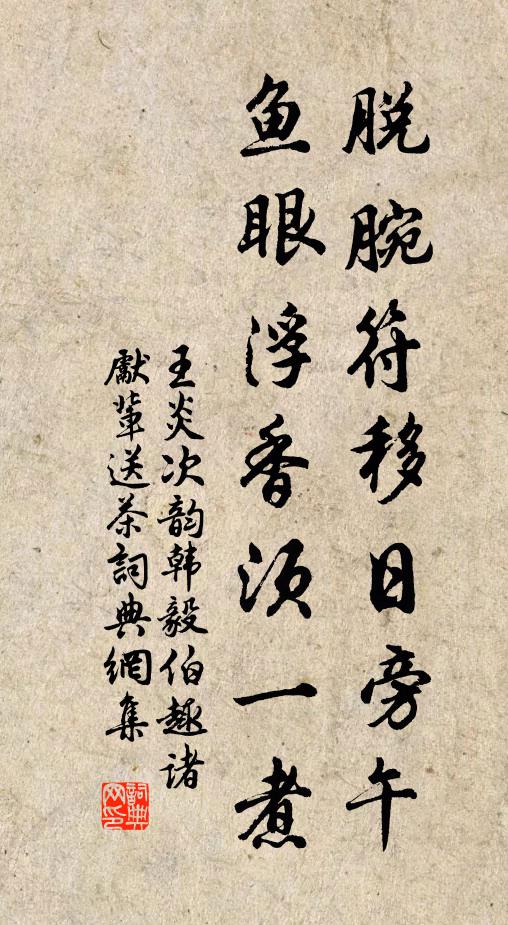 脱腕符移日旁午
鱼眼浮香须一煮
王炎次韵韩毅伯趣诸
獻輩送茶詞典網集
詞典网印